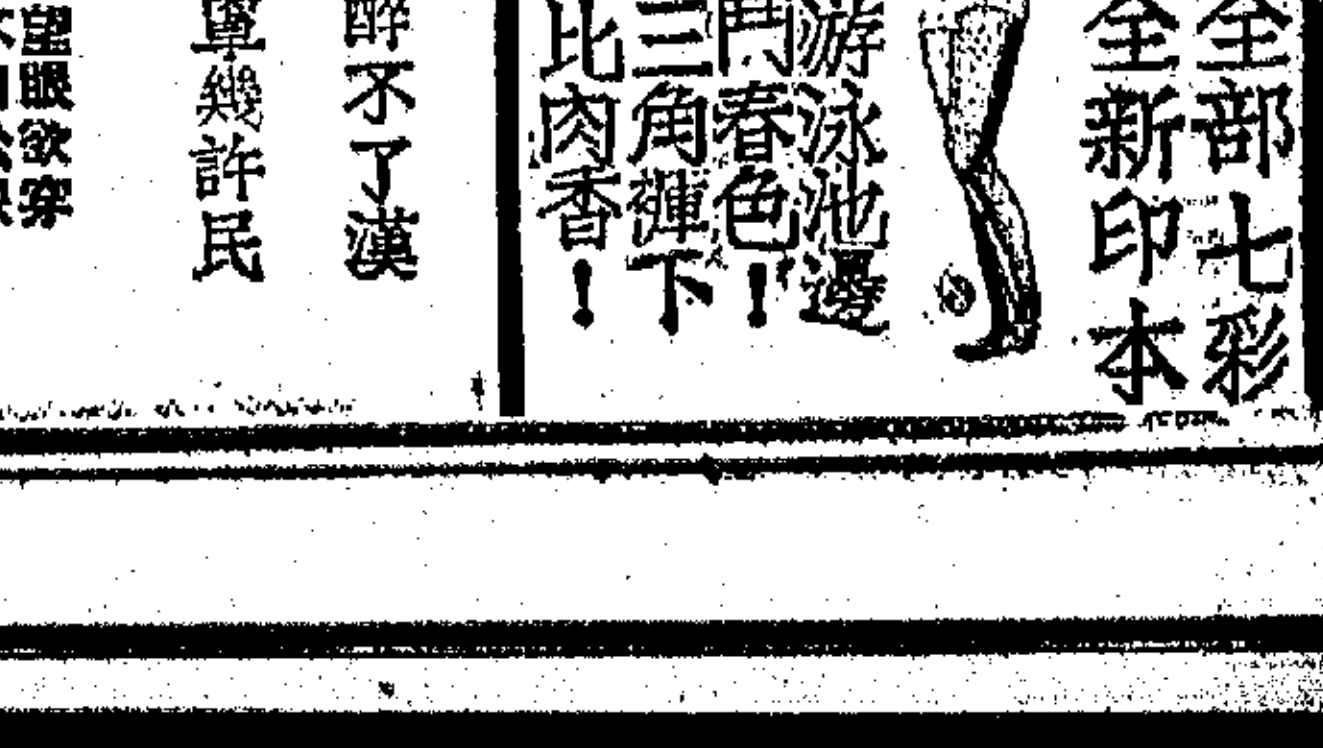 全部七彩
全新印本
游泳池邊
鬥春色!
三角褲下
比肉香!
醉不了漢
幾許民
望眼欲穿